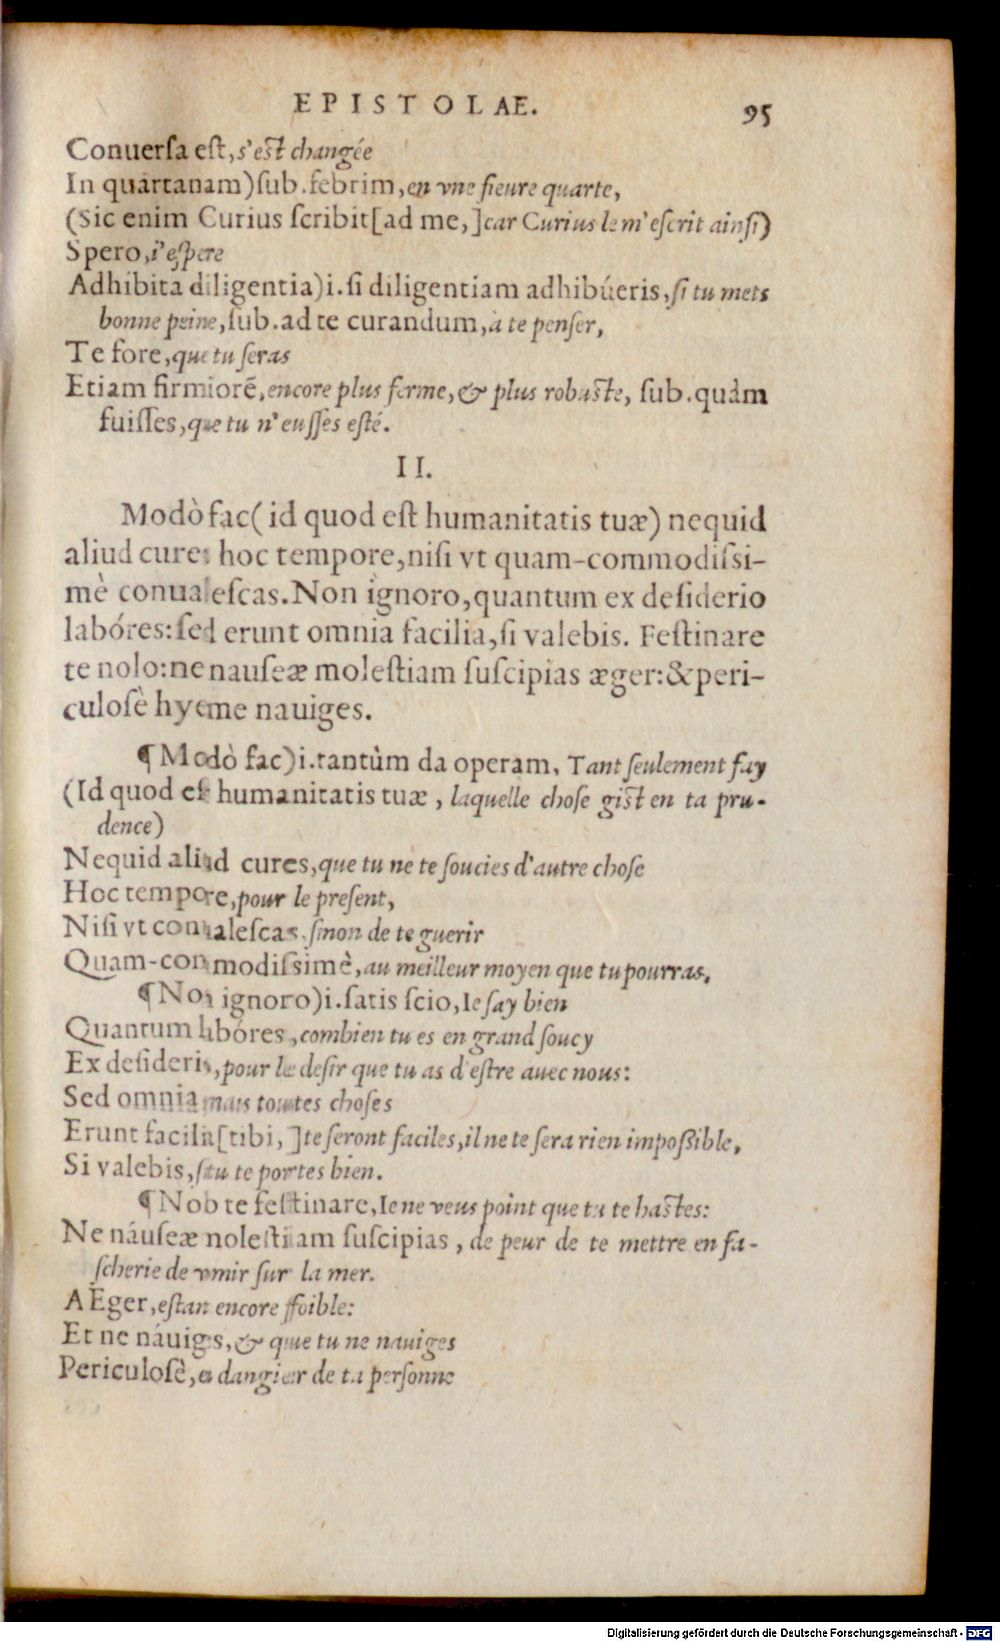 EPISTOLAE. 95
Conuersa est, s'est changée
In quartanam) sub. febrim, en vne fieure quarte,
(Sic enim Curius scribit [ad me,] car Curius le m'escrit ainsi)
Spero, i'espere
Adhibita diligentia) i. si diligentiam adhibúeris, si tu mets
bonne peine, sub. ad te curandum, à te penser,
Te fore, que tu seras
Etiam firmiorē, encore plus ferme, & plus robuste, sub. quàm
fuisses, que tu n'eusses esté.
II.
Modò fac (id quod est humanitatis tuæ) nequid
aliud cures hoc tempore, nisi vt quam-commodissi-
mè conualescas. Non ignoro, quantum ex desiderio
labóres: sed erunt omnia facilia, si valebis. Festinare
te nolo: ne nauseæ molestiam suscipias æger: & peri-
culosè hyeme nauiges.
¶ Modò fac) i. tantùm da operam, Tant seulement fay
(Id quod est humanitatis tuæ, laquelle chose gist en ta pru-
dence)
Nequid aliud cures, que tu ne te soucies d'autre chose
Hoc tempore, pour le present,
Nisi vt conualescas, sinon de te guerir
Quam-commodissimè, au meilleur moyen que tu pourras.
¶ Non ignoro) i. satis scio, Ie say bien
Quantum labóres, combien tu es en grand soucy
Ex desideris, pour le desir que tu as d'estre auec nous:
Sed omnia mais toutes choses
Erunt facilia [tibi,] te seront faciles, il ne te sera rien impossible,
Si valebis, si tu te portes bien.
¶ Nolo te festinare, Ie ne veus point que tu te hastes:
Ne náuseæ molestiam suscipias, de peur de te mettre en fa-
scherie de vomir sur la mer.
AEger, estant encore foible:
Et ne náuiges, & que tu ne nauiges
Periculosè, a dangier de ta personne
Digitalisierung gefördert durch die Deutsche Forschungsgemeinschaft - DFG